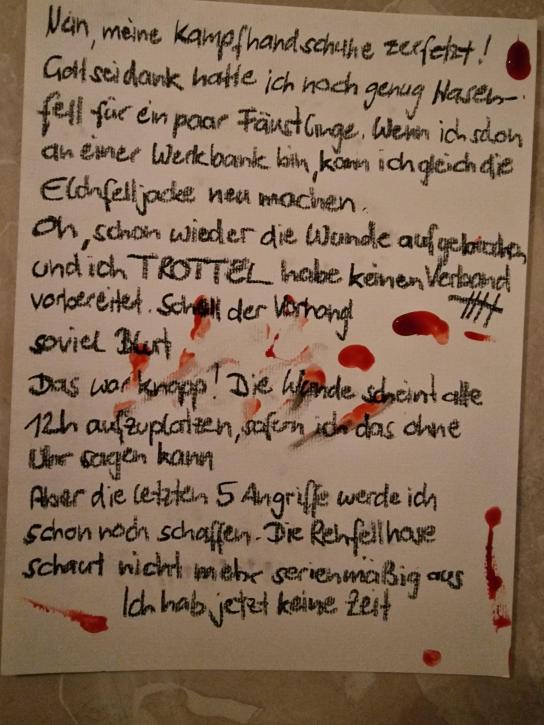 Nein, meine Kampfhandschuhe zerfetzt!
Gott sei dank hatte ich noch genug Hasen-
fell für ein paar Fäustlinge. Wenn ich schon
an einer Werkbank bin, kann ich gleich die
Elchfelljacke neu machen.
Oh, schon wieder die Wunde aufgebrochen,
und ich TROTTEL habe keinen Verband
vorbereitet. Schnell der Vorhang
soviel Blut
Das war knapp! Die Wunde scheint alle
12h aufzuplatzen, sofern ich das ohne
Uhr sagen kann
Aber die letzten 5 Angriffe werde ich
schon noch schaffen. Die Rehfellhose
schaut nicht mehr serienmäßig aus
Ich hab jetzt keine Zeit